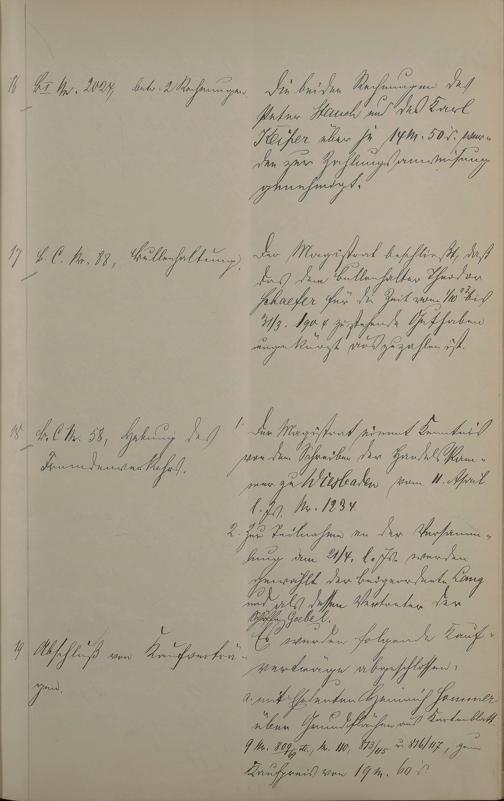 16 B I Nr. 2024, betr. 2 Rechnungen.
Die beiden Rechnungen des
Peter Hauch und des Karl
Keiper über je 14 M. 50 d. wur-
den zur Zahlungsanweisung
genehmigt.
17 B. C. Nr. 88, Bullenhaltung.
Der Magistrat beschließt, daß
das dem Bullenhalter Theodor
Schaefer für die Zeit vom 1/10 03 bis
31/3. 1904 zustehende Guthaben
ungekürzt auszuzahlen ist.
18 B. C Nr. 58, Hebung des
Fremdenverkehrs.
1. Der Magistrat nimmt Kenntnis
von dem Schreiben der Handelskam-
mer zu Wiesbaden vom 11. April
l. Js. Nr. 1234.
2. Zur Teilnahme an der Versamm-
lung am 21/4. l. Js. werden
gewählt der Beigeordnete Lang
und als dessen Vertreter der
Schöffe Goebel.
19 Abschluß von Kaufverträ-
gen.
Es wurden folgende Kauf-
verträge abgeschlossen:
a. mit Heinrich Hommer
über Grundflächen aus Kartenblatt
9 Nr. Nr. 110, 873/115 u. 876/117, zum
Kaufpreis von 19 M. 60 d